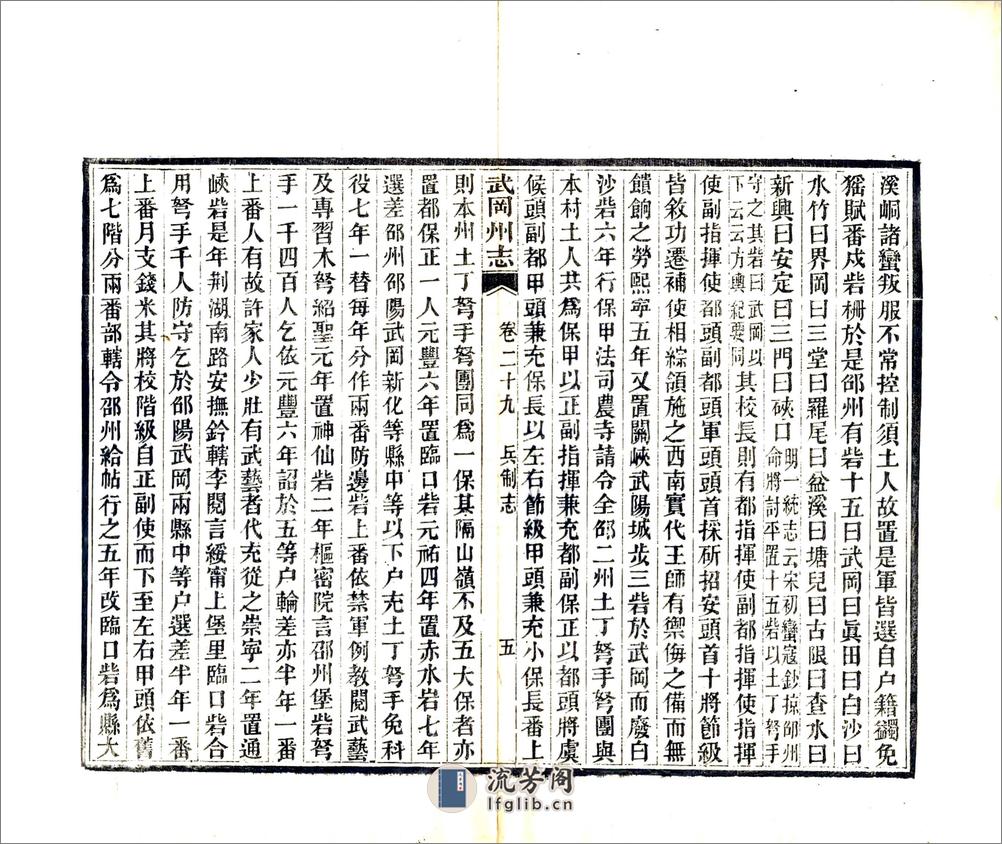 溪峒諸蠻叛服不常控制須土人故置是軍皆選自户籍蠲免
猺賦番戍砦栅於是邵州有砦十五曰武岡曰眞田曰白沙曰
水竹曰界岡曰三堂曰羅尾曰盆溪曰塘兒曰古限曰查水曰
新興曰安定曰三門曰硤口明一統志云宋初蠻寇鈔掠邵州命將討平置十五砦以土丁弩手
守之其砦曰武岡以下云云方輿紀要同其校長則有都指揮使副都指揮使指揮
使副指揮使都頭副都頭軍頭頭首採斫招安頭首十將節級
皆敘功遷補使相綜領施之西南實代王師有禦侮之備而無
饋餉之勞熙寧五年又置關峽武陽城步三砦於武岡而廢白
沙砦六年行保甲法司農寺請令全邵二州土丁弩手弩團與
本村土人共為保甲以正副指揮兼充都副保正以都頭將虞
候頭副都甲頭兼充保長以左右節級甲頭兼充小保長番上
武岡州志 卷二十九 兵制志 五
則本州土丁弩手弩團同爲一保其隔山嶺不及五大保者亦
置都保正一人元豐六年置臨口砦元祐四年置赤水砦七年
選差邵州邵陽武岡新化等縣中等以下户充土丁弩手免科
役七年一替每年分作兩番防邊砦上番依禁軍例教閱武藝
及專習木弩紹聖元年置神仙砦二年樞密院言邵州堡砦弩
手一千四百人乞依元豐六年詔於五等户輪差亦半年一番
上番人有故許家人少壯有武藝者代充從之崇寧二年置通
峽砦是年荆湖南路安撫鈐轄李閱言綏甯上堡里臨口砦合
用弩手千人防守乞於邵陽武岡兩縣中等户選差半年一番
上番月支錢米其將校階級自正副使而下至左右甲頭依舊
爲七階分兩番部轄令邵州給帖行之五年改臨口砦爲縣大
流芳阁
lfglib.cn